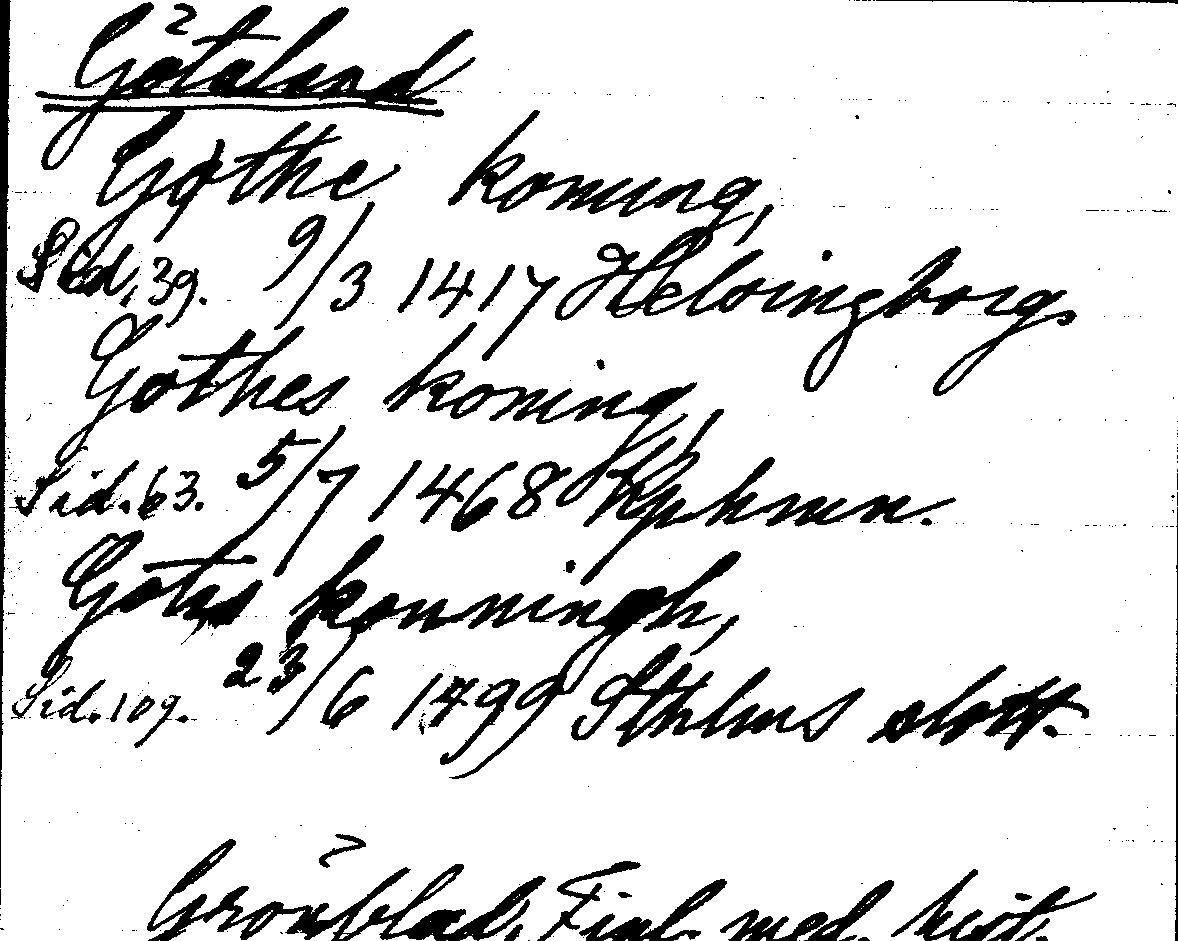 Götaland
Gøthe konung,
Sid. 39. 9/3 1417 Helsingborg.
Gothes koning,
Sid. 63. 5/7 1468 Kphmn.
Götes konningh,
Sid. 109. 23/6 1499 Sthlms slott.
Grönblad, Finl. med. hist.